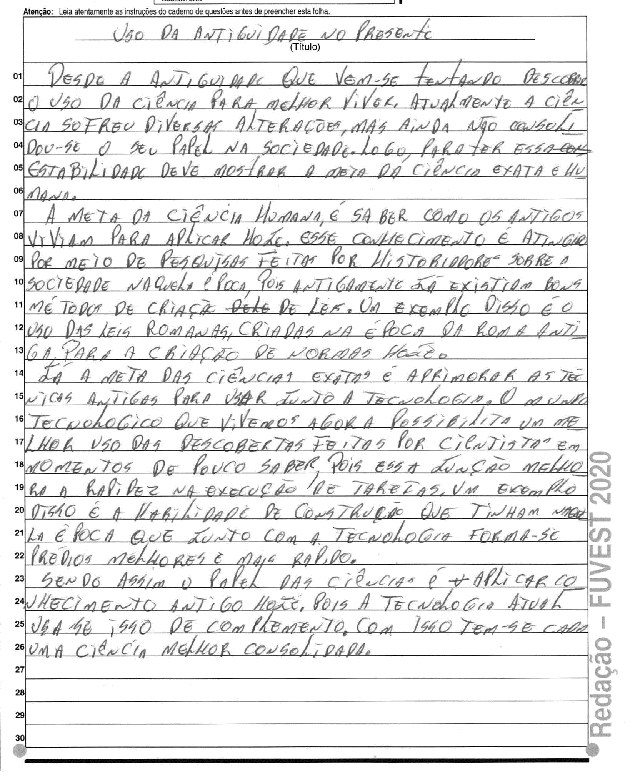 Atenção: Leia atentamente as instruções do caderno de questões antes de preencher esta folha.
USO DA ANTIGUIDADE NO PRESENTE
(Título)
01 DESDE A ANTIGUIDADE QUE VEM-SE TENTANDO DESCOBRIR
02 O USO DA CIÊNCIA PARA MELHOR VIVER. ATUALMENTE A CIÊN
03 CIA SOFREU DIVERSAS ALTERAÇÕES, MAS AINDA NÃO CONSOLI
04 DOU-SE O SEU PAPEL NA SOCIEDADE. LOGO, PARA TER ESSA
05 ESTABILIDADE DEVE MOSTRAR A META DA CIÊNCIA EXATA E HU
06 MANA.
07 A META DA CIÊNCIA HUMANA, É SABER COMO OS ANTIGOS
08 VIVIAM PARA APLICAR HOJE. ESSE CONHECIMENTO É ATINGIDO
09 POR MEIO DE PESQUISAS FEITAS POR HISTORIADORES SOBRE A
10 SOCIEDADE NAQUELA ÉPOCA, POIS ANTIGAMENTE JÁ EXISTIAM BONS
11 MÉTODOS DE CRIAÇÃO DE LEIS. UM EXEMPLO DISSO É O
12 USO DAS LEIS ROMANAS, CRIADAS NA ÉPOCA DA ROMA ANTI
13 GA, PARA A CRIAÇÃO DE NORMAS HOJE.
14 JÁ A META DAS CIÊNCIAS EXATAS É APRIMORAR AS TÉC
15 NICAS ANTIGAS PARA USAR JUNTO A TECNOLOGIA. O MUNDO
16 TECNOLOGICO QUE VIVEMOS AGORA POSSIBILITA UM ME
17 LHOR USO DAS DESCOBERTAS FEITAS POR CIENTISTAS EM
18 MOMENTOS DE POUCO SABER, POIS ESSA JUNÇÃO MELHO
19 RA A RAPIDEZ NA EXECUÇÃO DE TAREFAS. UM EXEMPLO
20 DISSO É A HABILIDADE DE CONSTRUÇÃO QUE TINHAM NAQUE
21 LA ÉPOCA QUE JUNTO COM A TECNOLOGIA FORMA-SE
22 PRÉDIOS MELHORES E MAIS RAPIDO.
23 SENDO ASSIM O PAPEL DAS CIÊNCIAS É APLICAR CO
24 NHECIMENTO ANTIGO HOJE, POIS A TECNOLOGIA ATUAL
25 USA-SE ISSO DE COMPLEMENTO. COM ISSO TEM-SE CADA
26 UMA CIÊNCIA MELHOR CONSOLIDADA.
27
28
29
30
Redação – FUVEST 2020